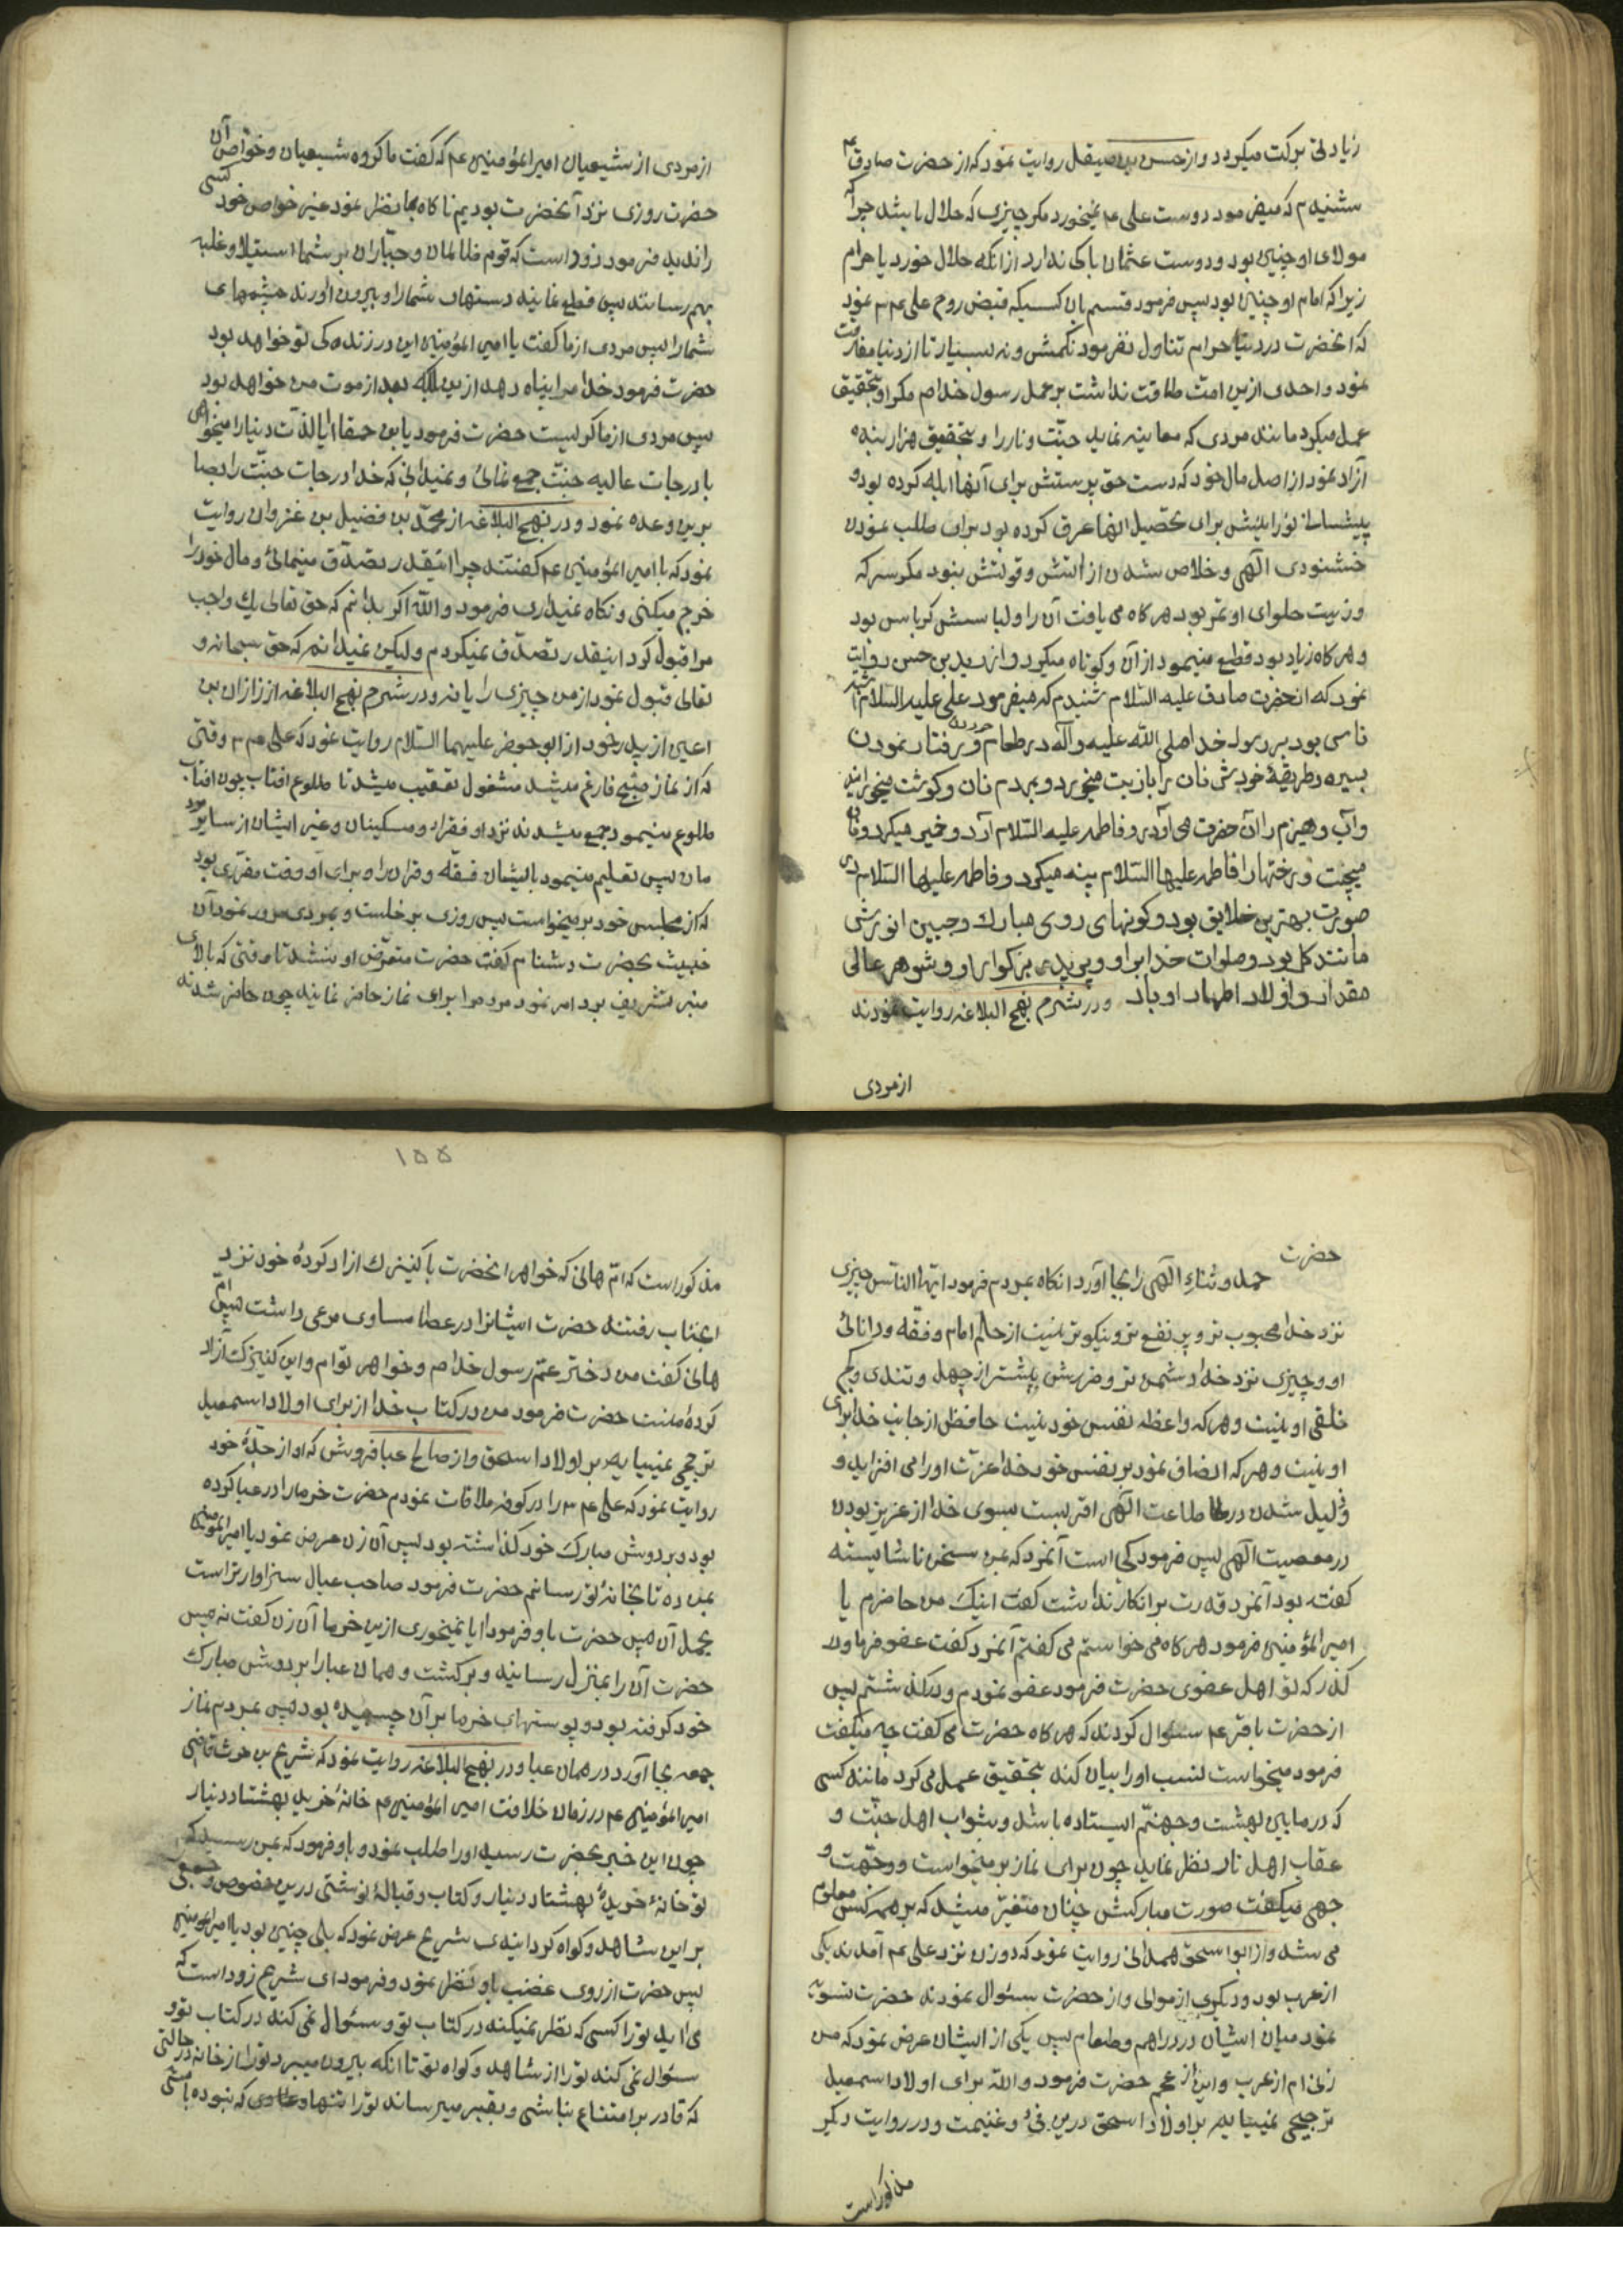 زیادتی برکت میکردد و از حسن بن صیقل روایت نمود که از حضرت صادق ع
شنیدم که میفرمود دوست علی ع نمیخورد مکر چیزی که حلال باشد چرا که
مولای او چنین بود و دوست عثمان باکی ندارد از آنکه حلال خورد یا حرام
زیرا که امام او چنین بود پس فرمود قسم بآن کسیکه قبض روح علی ع نمود
که آنحضرت در دنیا حرام تناول نفرمود نه کمش و نه بسیار تا از دنیا مفارقت
نمود و احدی ازین امت طاقت نداشت بر عمل رسول خدا ص مکر او و بتحقیق
عمل میکرد مانند مردی که معاینه نماید جنّت و نار را و بتحقیق هزار بنده
آزاد نمود از اصل مال خود که دست حق پرستش برای آنها آبله کرده بود و
پیشانی نورانیش برای تحصیل آنها عرق کرده بود برای طلب نمودن
خشنودی الهی و خلاص شدن از آتش و قوتش نبود مکر سرکه
و زیت حلوای او تمر بود هرکاه می یافت آن را و لباسش کرباس بود
و هرکاه زیاد بود قطع مینمود از آن و کوتاه میکرد و از زید بن حسن روایت
نمود که از حضرت صادق علیه السّلام شنیدم که میفرمود علی علیه السلام شبیه
ناس بود برسول خدا صلی الله علیه وآله در طعام خوردن و رفتار نمودن
بسیره و طریقهٔ خودش نان را با زیت میخورد و بمردم نان و کوشت میخورانید
و آب و هیزم را آن حضرت می آورد و فاطمه علیها السّلام آرد و خمیر میکرد و نان
میپخت و رختها را فاطمه علیها السّلام پینه میکرد و فاطمه علیها السّلام در
صورت بهترین خلایق بود و کونهای روی مبارک و جبین انورش
مانند کل بود و صلوات خدا بر او و پدر بزرکوار او و شوهر عالی
مقدار و اولاد اطهار او باد و در شرح نهج البلاغه روایت نمودند
از مردی
از مردی از شیعیان امیر المؤمنین ع م که گفت ما کروه شیعیان و خواص آن
حضرت روزی نزد آنحضرت بودیم ناکاه بما نظر نمود غیر خواص خود کسی
را ندید فرمود زود است که قوم ظالمان و جبّاران بر شما استیلا و غلبه
بهم رسانند پس قطع نمایند دستهای شما را و بیرون آورند چشمهای
شما را پس مردی از ما کفت یا امیر المؤمنین این در زندگی تو خواهد بود
حضرت فرمود خدا مرا پناه دهد ازین بلکه بعد از موت من خواهد بود
پس مردی از ما کریست حضرت فرمود یابن حمقا آیا لذّات دنیا را میخواهی
با درجات عالیه جنّت جمع نمائی و نمیدانی که خدا درجات جنّت را بصا
برین وعده نمود و در نهج البلاغه از محمّد بن فضیل بن غزوان روایت
نمود که با امیر المؤمنین ع م کفتند چرا اینقدر تصدّق مینمائی و مال خود را
خرج میکنی و نکاه نمیداری فرمود والله اکر بدانم که حق تعالی یک واجب
مرا قبول کرد اینقدر تصدّق نمیکردم و لیکن نمیدانم که حق سبحانه و
تعالی قبول نمود از من چیزی را یا نه و در شرح نهج البلاغه از زازان بن
اعین از پدر خود از ابو جعفر علیهما السّلام روایت نمود که علی ع م وقتی
که از نماز صبح فارغ میشد مشغول تعقیب میشد تا طلوع آفتاب چون آفتاب
طلوع مینمود جمع میشدند نزد او فقرا و مسکینان و غیر ایشان از سایر مرد
مان پس تعلیم مینمود بایشان فقه و قرآن را و برای او وقت مقرّری بود
که از مجلس خود برمیخواست پس روزی برخاست و بمردی مرور نمود آن
خبیث بحضرت دشنام کفت حضرت متعرّض او نشد تا وقتی که بالای
منبر تشریف برد امر نمود مردم را برای نماز حاضر نمایند چون حاضر شدند
حضرت
حمد و ثنای الهی را بجا آورد انکاه بمردم فرمود ایّها النّاس چیزی
نزد خدا محبوب تر و پر نفع تر و نیکوتر نیست از حلم امام و فقه و دانائی
او و چیزی نزد خدا دشمن تر و ضررش بیشتر از جهل و تندی و کج
خلقی او نیست و هر که واعظه نفس خود نیست حافظی از جانب خدا برای
او نیست و هر که انصاف نمود بر نفس خود خدا عزّت او را می افزاید و
ذلیل شدن در طاعت الهی اقربست بسوی خدا از عزیز بودن
در معصیت الهی پس فرمود کجا است آنمرد که بمن سخن ناشایسته
کفته بود آنمرد قدرت بر انکار نداشت کفت اینک من حاضرم یا
امیر المؤمنین فرمود هرکاه می خواستم می کفتم آنمرد کفت عفو فرما و در
کذر که تو اهل عفوی حضرت فرمود عفو نمودم و در کذشتم پس
از حضرت باقر ع م سئوال کردند که هرکاه حضرت می کفت چه میکفت
فرمود میخواست نسب او را بیان کند بتحقیق عمل می کرد مانند کسی
که در مابین بهشت و جهنّم ایستاده باشد و بثواب اهل جنّت و
عقاب اهل نار نظر نماید چون برای نماز برمیخواست و وجّهت و
جهی میکفت صورت مبارکش چنان متغیّر میشد که بر همه کس معلوم
می شد و از ابو اسحق همدانی روایت نمود که دو زن نزد علی ع م آمدند یکی
از عرب بود و دیگری از موالی و از حضرت سئوال نمودند حضرت تسویه
نمود میان ایشان در دراهم و طعام پس یکی از ایشان عرض نمود که من
زنی ام از عرب و این از عجم حضرت فرمود والله برای اولاد اسمعیل
ترجیحی نمییابم بر اولاد اسحق درین فیء و غنیمت و در روایت دیکر
مذکور است
۱۵۵
مذکور است که امّ هانی که خواهر آنحضرت با کنیزک ازاد کردهٔ خود نزد
آنجناب رفتند حضرت ایشانرا در عطا مساوی مرعی داشت پس ام
هانی کفت من دختر عمّ رسول خدا ص و خواهر توام و این کنیزک آزاد
کردهٔ منست حضرت فرمود من در کتاب خدا از برای اولاد اسمعیل
ترجیحی نمییابم بر اولاد اسحق و از صالح عبا فروش که او از جدّهٔ خود
روایت نمود که علی ع م را در کوفه ملاقات نمودم حضرت خرما را در عبا کرده
بود و بر دوش مبارک خود کذاشته بود پس آن زن عرض نمود یا امیر المؤمنین
بمن ده تا بخانهٔ تو رسانم حضرت فرمود صاحب عیال سزاوارتر است
بحمل آن پس حضرت باو فرمود آیا نمیخوری ازین خرما آن زن کفت نه پس
حضرت آن را بمنزل رسانید و برکشت و همان عبا را بر دوش مبارک
خود کرفته بود و پوستهای خرما بر آن چسبیده بود پس بمردم نماز
جمعه بجا آورد در همان عبا و در نهج البلاغه روایت نمود که شریح بن حرث قاضی
امیر المؤمنین ع م در زمان خلافت امیر المؤمنین ع م خانهٔ خرید بهشتاد دینار
چون این خبر بحضرت رسید او را طلب نمود و باو فرمود که بمن رسید که
تو خانهٔ خریدهٔ بهشتاد دینار و کتاب و قبالهٔ نوشتی درین خصوص و جمعی
بر این شاهد و کواه کردانیدی شریح عرض نمود که بلی چنین بود یا امیر المؤمنین
پس حضرت از روی غضب باو نظر نمود و فرمود ای شریح زود است که
می آید تو را کسی که نظر نمیکند در کتاب تو و سئوال نمی کند در کتاب تو و
سئوال نمی کند تو را از شاهد و کواه تو تا انکه بیرون میبرد تو را از خانه در حالتی
که قادر بر امتناع نباشی و بقبر میرساند تو را تنها که نبوده باشی